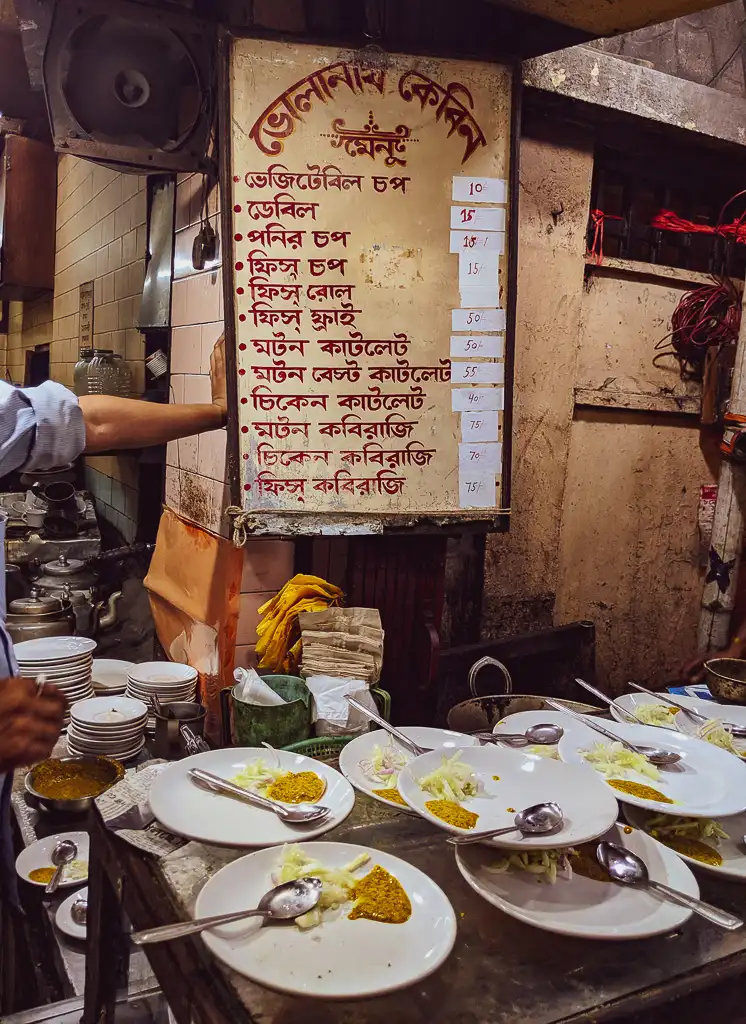 ভোলানাথ কেবিন
মেনু
• ভেজিটেবিল চপ 10/-
• ডেবিল 15/-
• পনির চপ 15/-
• ফিস্ চপ 15/-
• ফিস্ রোল
• ফিস্ ফ্রাই 50/-
• মটন কাটলেট 50/-
• মটন বেস্ট কাটলেট 55/-
• চিকেন কাটলেট 40/-
• মটন কবিরাজি 75
• চিকেন কবিরাজি 70/-
• ফিস্ কবিরাজি 75/-